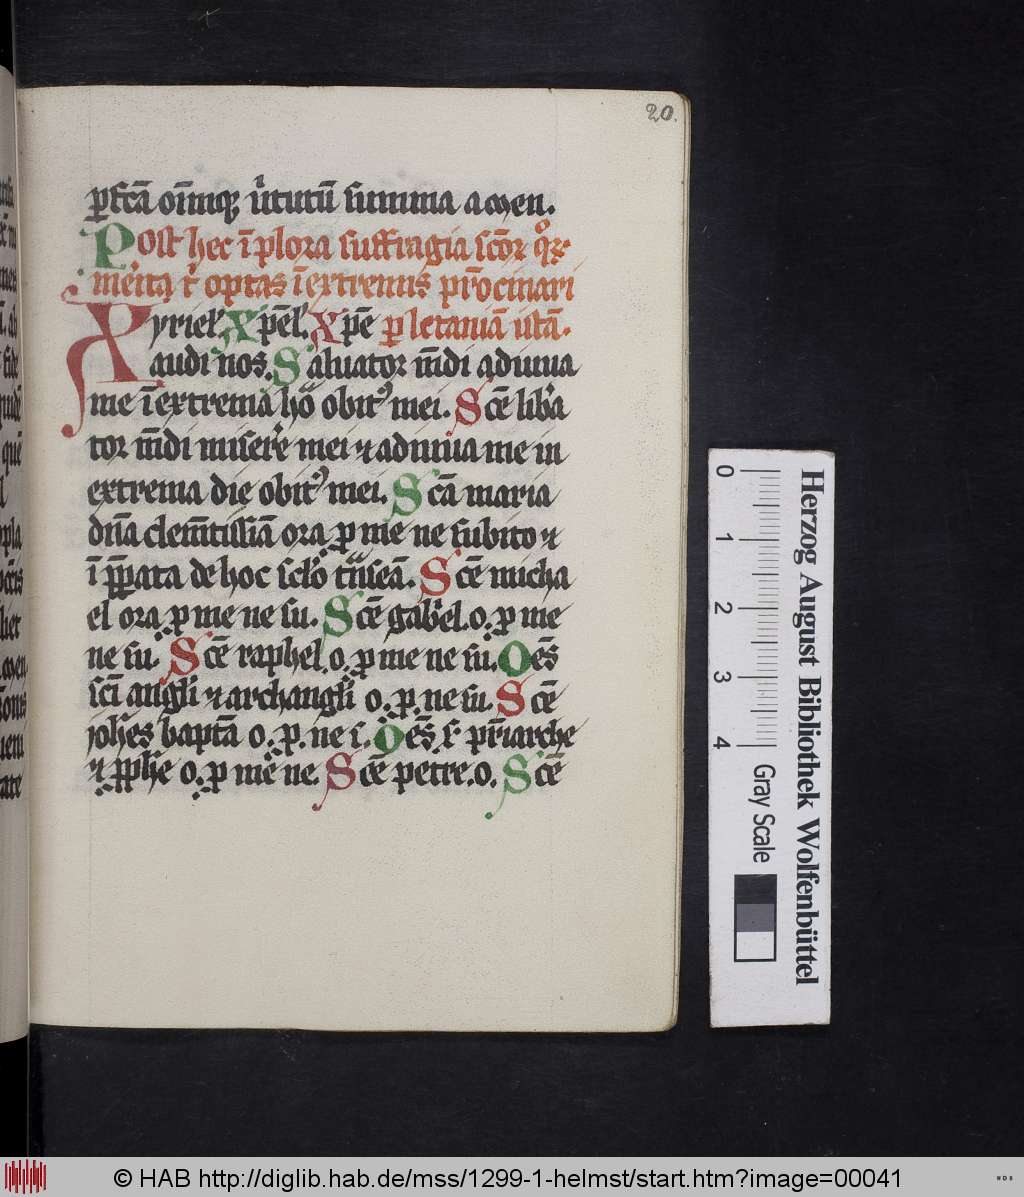 20.
ꝑfcā oīmqꝫ v̾tutū summa amen.
Post hec īplora suffragia scōꝝ qͦꝝ
merita t̾ optas ī extremis pr̄ocinari
Kyriel̾. Xpēl̾. Xpē ꝑ letaniā istā.
Xaudi nos. Saluator mdi adiuua
me ī extrema hō obitꝰ mei. Scē libā
tor mdi miserē mei ⁊ adiuua me in
extrema die obitꝰ mei. Scā maria
dn̄a clemtissiā ora ꝓ me ne subito ⁊
ī ꝑꝑata de hoc sclō tn̄seā. Scē micha
el ora ꝓ me ne su. Scē gab̾el. o. ꝓ me
ne su. Scē raphel. o. ꝓ me ne su. Oēs
sci angli ⁊ archangli o. ꝓ. ne su. Scē
joh̄es baptā o. ꝓ. ne s. Oēs. s. pr̄iarche
⁊ ꝓph̄e o. ꝓ me ne. Scē petre. o. Scē
Herzog August Bibliothek Wolfenbüttel
0 1 2 3 4
Gray Scale
© HAB http://diglib.hab.de/mss/1299-1-helmst/start.htm?image=00041